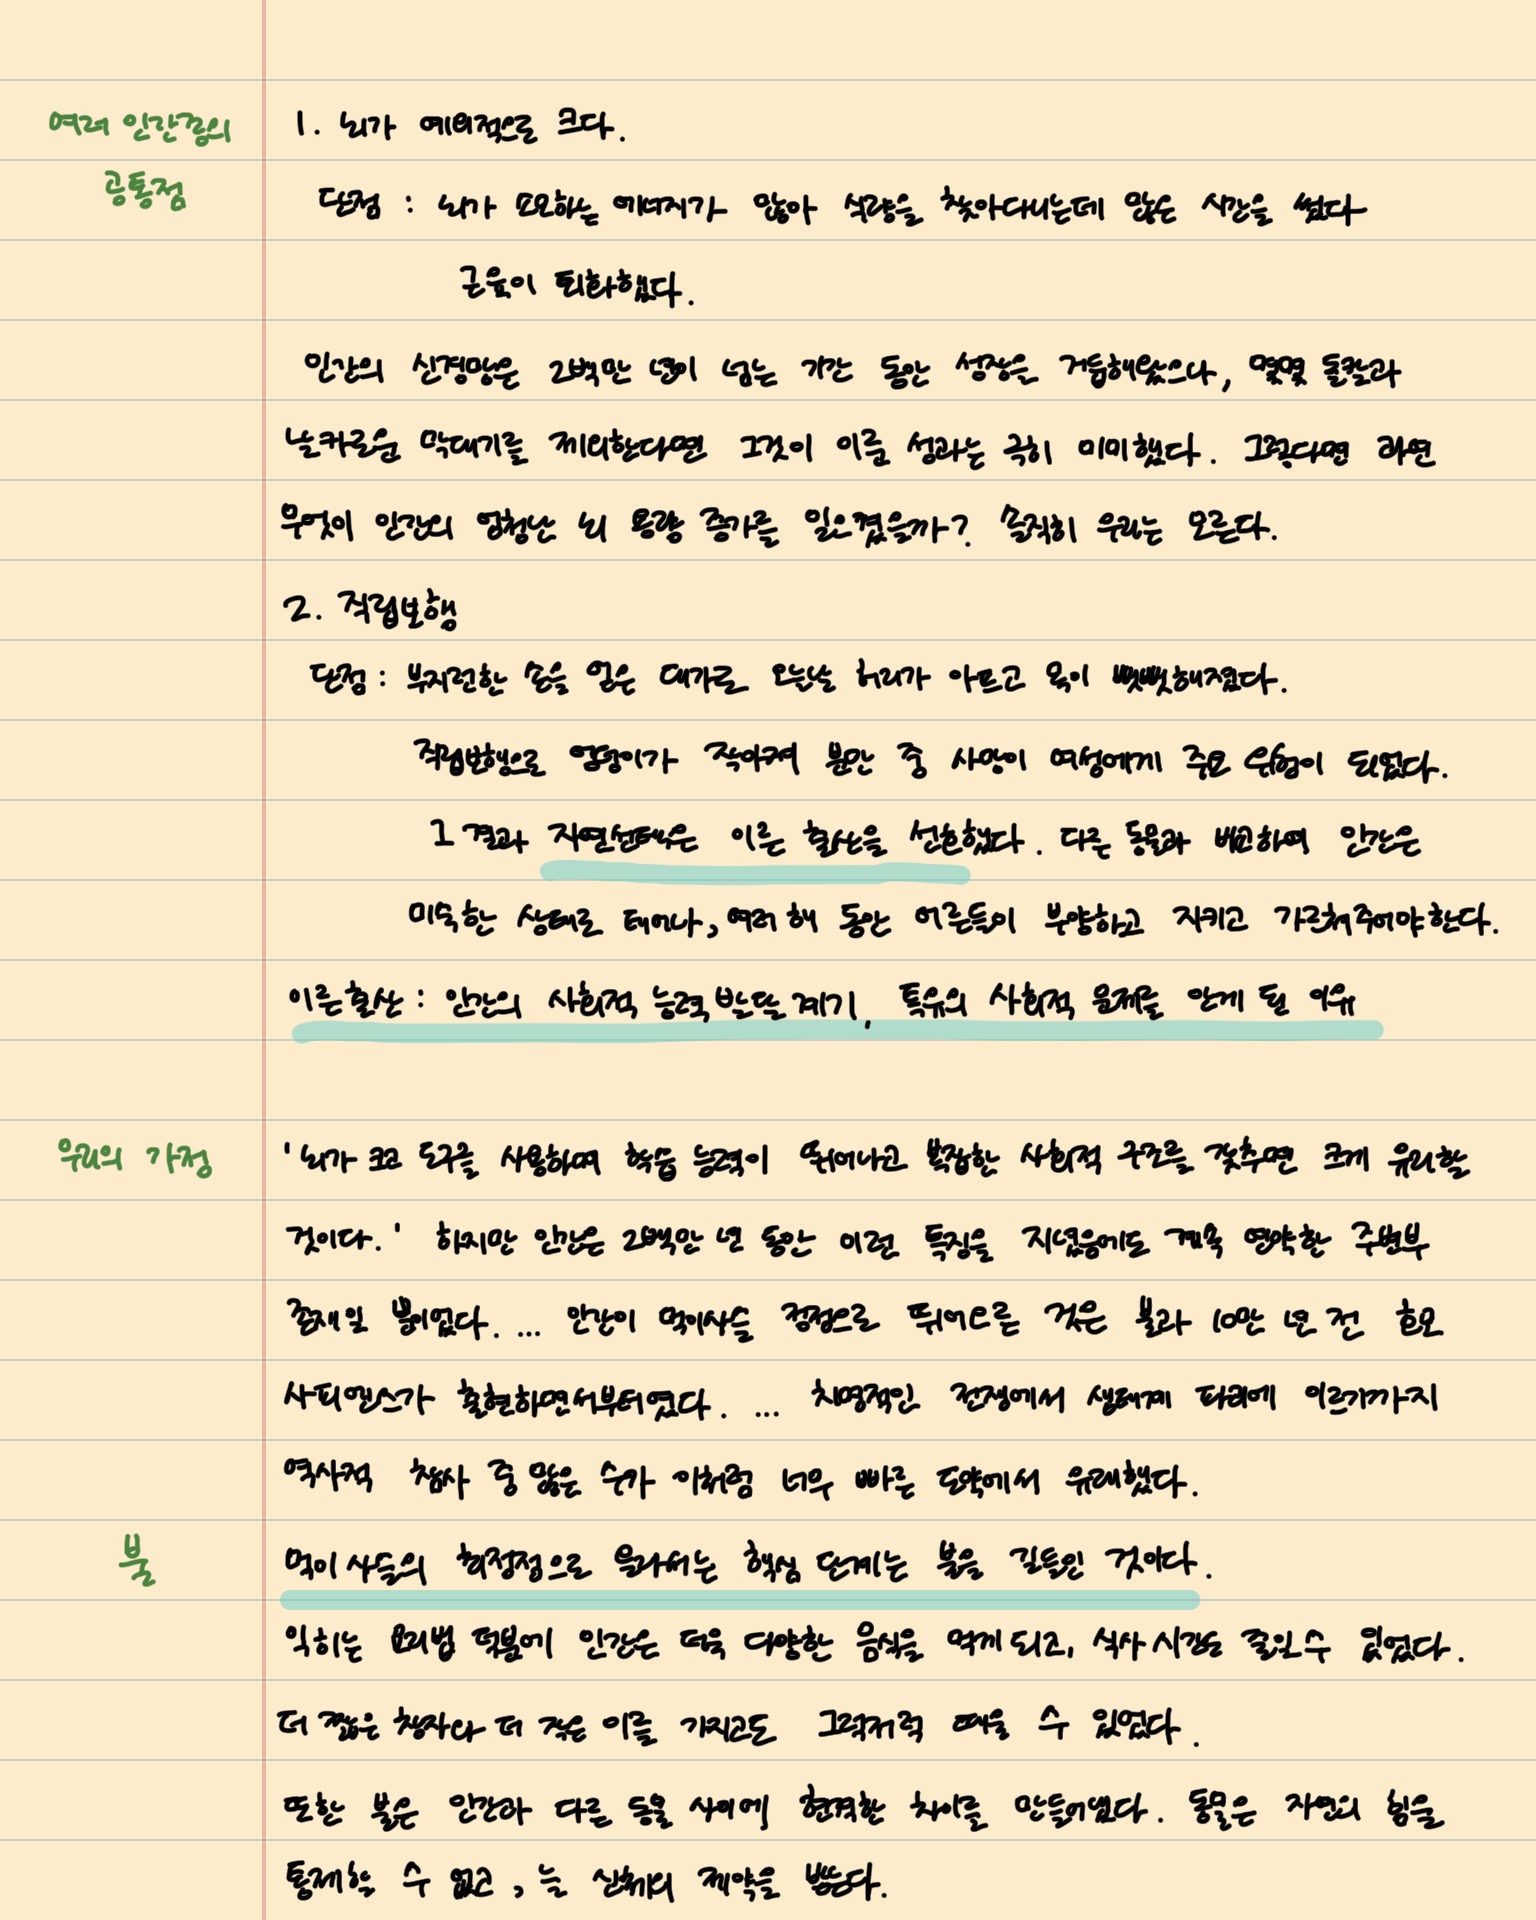 여러 인간종의
공통점
1. 뇌가 예외적으로 크다.
단점 : 뇌가 소모하는 에너지가 많아 식량을 찾아다니는데 많은 시간을 썼다
근육이 퇴화했다.
인간의 신경망은 2백만 년이 넘는 기간 동안 성장을 거듭해왔으나, 몇몇 돌칼과
날카로운 막대기를 제외한다면 그것이 이룬 성과는 극히 미미했다. 그렇다면 과연
무엇이 인간의 엄청난 뇌 용량 증가를 일으켰을까? 솔직히 우리는 모른다.
2. 직립보행
단점 : 부지런한 손을 얻은 대가로 오늘날 허리가 아프고 목이 뻣뻣해졌다.
직립보행으로 엉덩이가 작아져 분만 중 사망이 여성에게 주요 위험이 되었다.
그 결과 자연선택은 이른 출산을 선호했다. 다른 동물과 비교하여 인간은
미숙한 상태로 태어나, 여러 해 동안 어른들이 부양하고 지키고 가르쳐주어야한다.
이른출산 : 인간의 사회적 능력 발달 계기, 특유의 사회적 문제를 안게 된 이유
우리의 가정
'뇌가 크고 도구를 사용하며 학습 능력이 뛰어나고 복잡한 사회적 구조를 갖추면 크게 유리할
것이다.' 하지만 인간은 2백만 년 동안 이런 특징을 지녔음에도 계속 연약한 주변부
존재일 뿐이었다. ... 인간이 먹이사슬 정점으로 뛰어오른 것은 불과 10만 년 전 호모
사피엔스가 출현하면서부터였다. ... 치명적인 전쟁에서 생태계 파괴에 이르기까지
역사적 참사 중 많은 수가 이처럼 너무 빠른 도약에서 유래했다.
불
먹이 사슬의 최정점으로 올라서는 핵심 단계는 불을 길들인 것이다.
익히는 요리법 덕분에 인간은 더욱 다양한 음식을 먹게 되고, 식사 시간도 줄일 수 있었다.
더 짧은 창자와 더 작은 이를 가지고도 그럭저럭 때울 수 있었다.
또한 불은 인간과 다른 동물 사이에 현격한 차이를 만들어냈다. 동물은 자연의 힘을
통제할 수 없고, 늘 신체의 제약을 받는다.